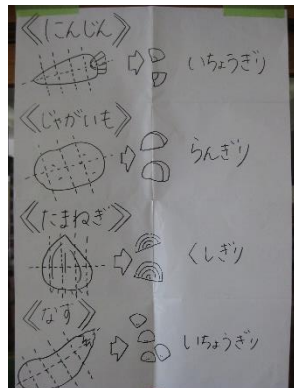 《にんじん》
いちょうぎり
《じゃがいも》
らんぎり
《たまねぎ》
くしぎり
《なす》
いちょうぎり